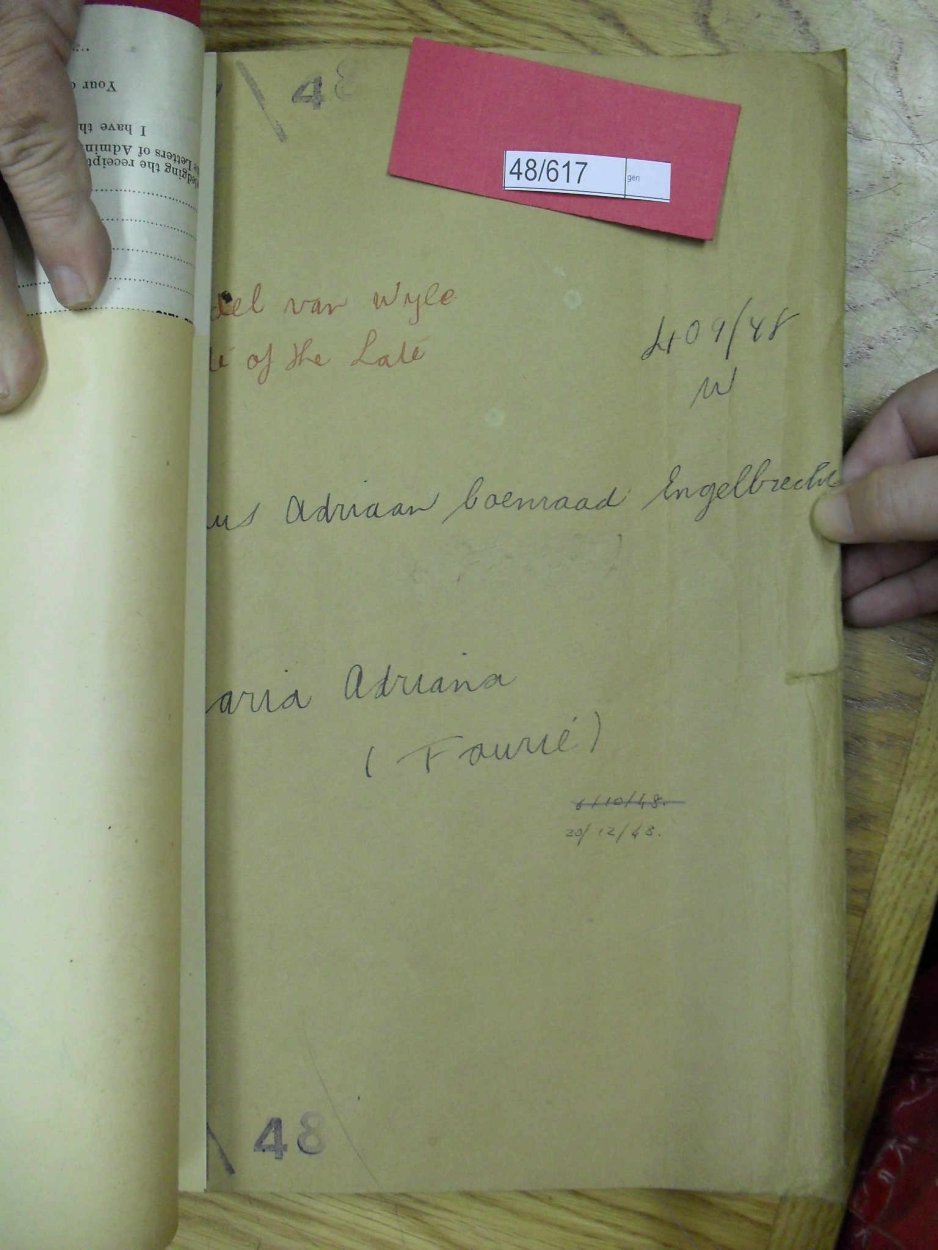 \ 48
48/617 gen
Your
I have th
Letters of Admin
edging the receipt
del van Wyle
te of the Late
409/48
W
us Adriaan Coenraad Engelbrecht
aria Adriana
( Fourié )
6/10/48.
20/12/48.
\ 48